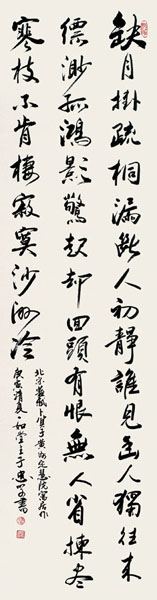 缺月掛疏桐漏断人初靜誰見幽人獨往来
缥渺孤鴻影驚起却回頭有恨無人省揀尽
寒枝不肯棲寂寞沙洲冷
北宋蘇軾卜算子黄州定慧院寓居作
庚寅清夏一如堂主于忠書